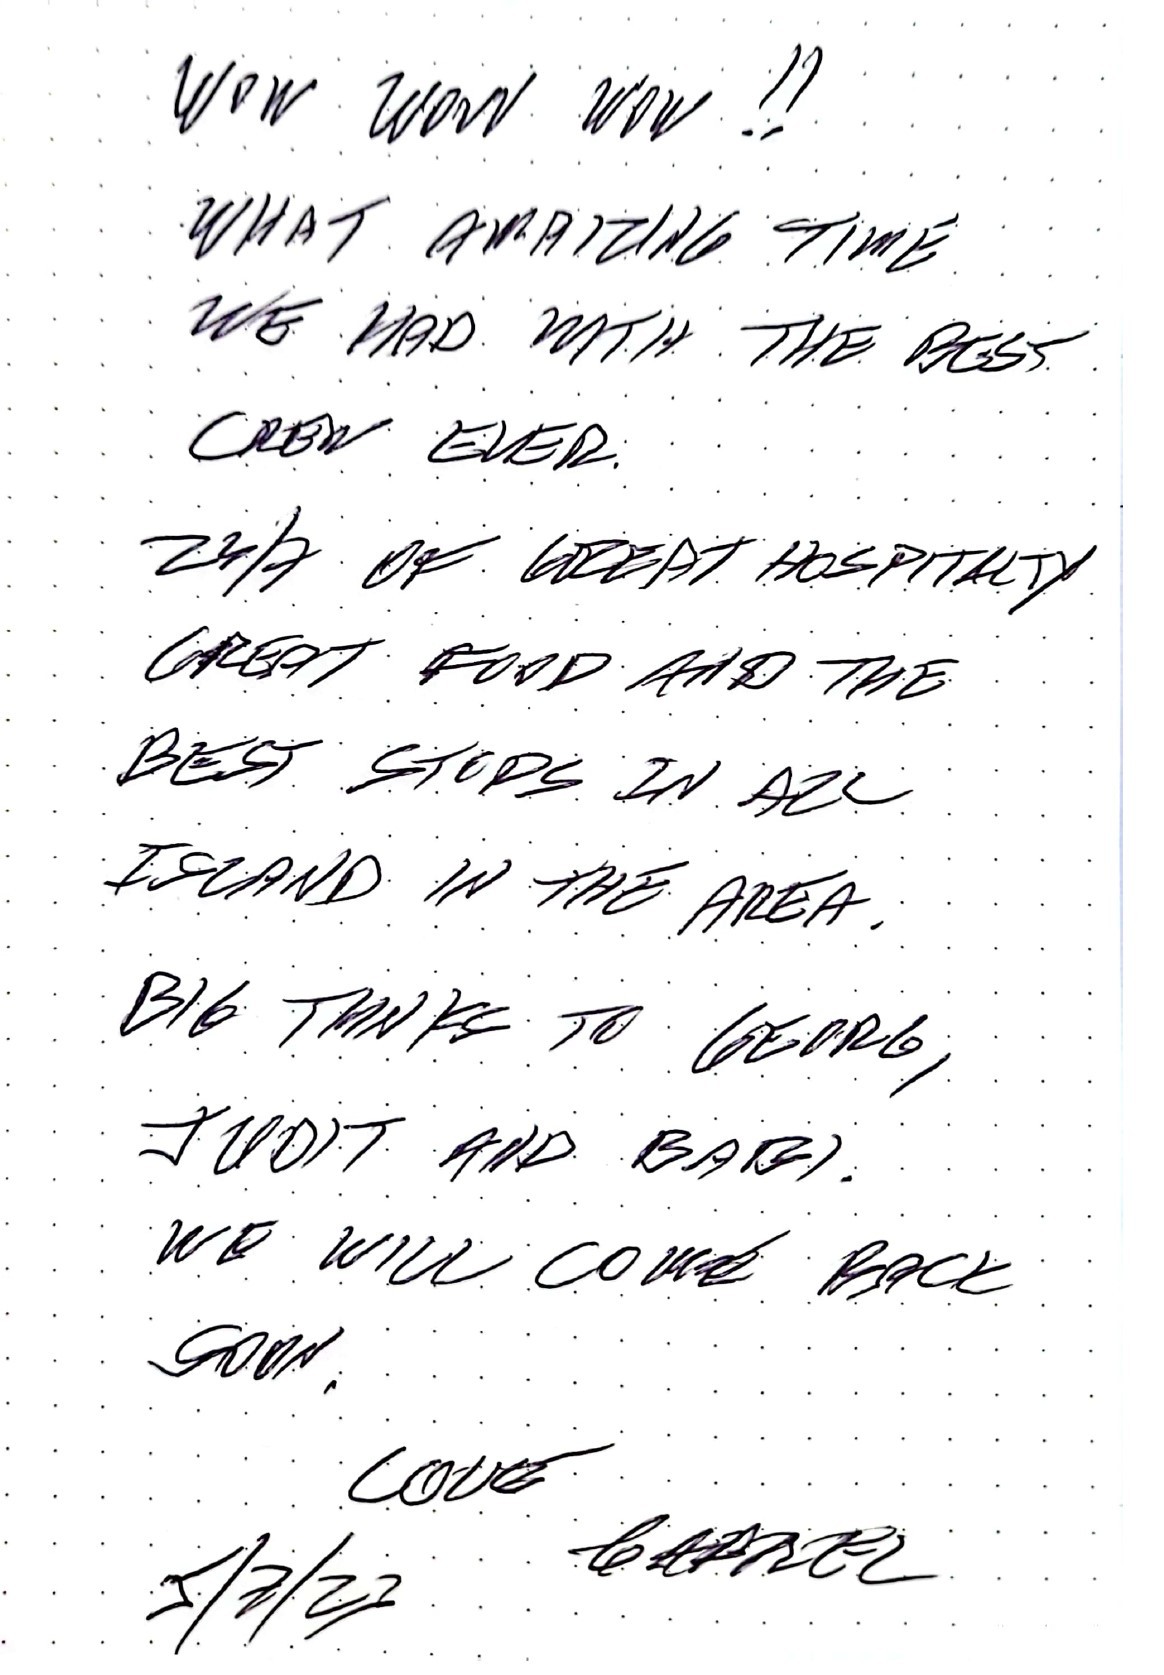 WOW WOW WOW !!
WHAT AMAIZING TIME
WE HAD WITH THE BEST
CREW EVER.
24/7 OF GREAT HOSPITALTY
GREAT FOOD AND THE
BEST STOPS IN ALL
ISLAND IN THE AREA.
BIG THNKS TO GEORG,
JUDIT AND BABI.
WE WILL COME BACK
SOON.
LOVE
GABRIEL
5/7/22